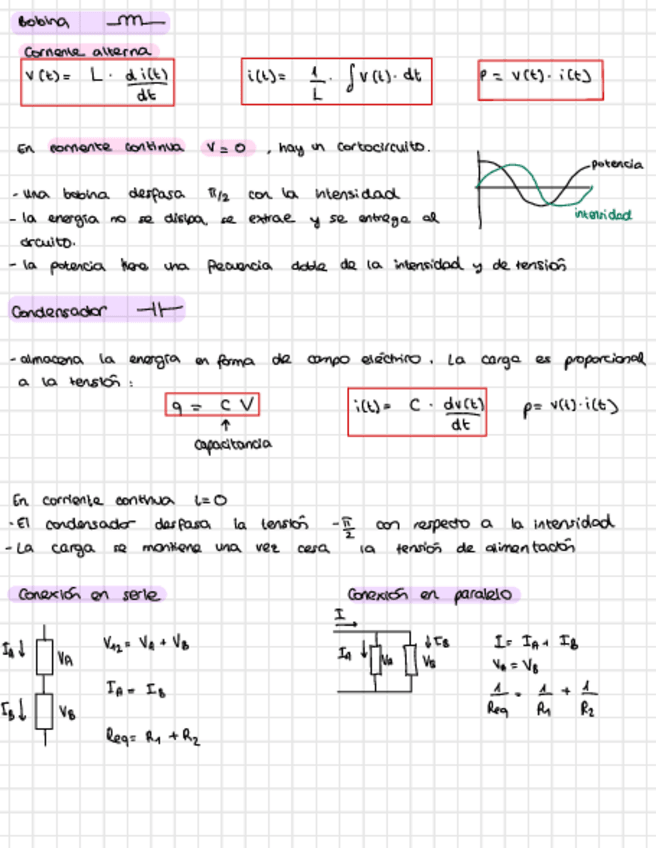 Bobina
Corriente alterna
v(t) = L · di(t)/dt
i(t) = 1/L · ∫ v(t) · dt
P = v(t) · i(t)
En corriente continua V = 0, hay un cortocircuito.
potencia
intensidad
- una bobina desfasa π/2 con la intensidad
- la energía no se disipa, se extrae y se entrega al
circuito.
- la potencia tiene una frecuencia doble de la intensidad y de tensión
Condensador
- almacena la energía en forma de campo eléctrico. La carga es proporcional
a la tensión:
q = C V
↑
capacitancia
i(t) = C · dv(t)/dt
p = v(t) · i(t)
En corriente continua i=0
- El condensador desfasa la tensión -π/2 con respecto a la intensidad
- La carga se mantiene una vez cesa la tensión de alimentación
Conexión en serie
IA ↓
VA
IB ↓
VB
V12 = VA + VB
IA = IB
Req = R1 + R2
Conexión en paralelo
I
IA ↓
VA
↓ IB
VB
I = IA + IB
VA = VB
1/Req = 1/R1 + 1/R2